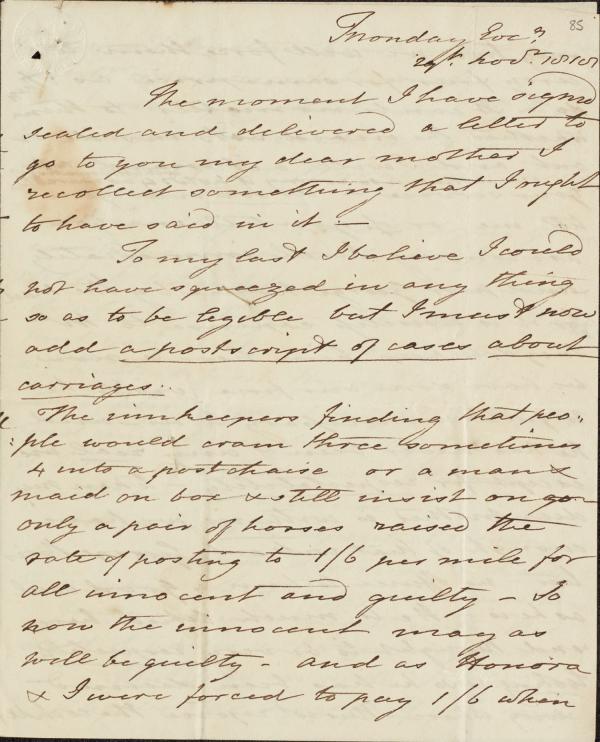 85
Monday Eve.g
Novr. 1818
The moment I have signed
sealed and delivered a letter to
go to you my dear mother I
recollect something that I ought
to have said in it –
To my last I believe I could
not have squeezed in any thing
so as to be legible but I must now
add a postscript of cases about
carriages..
The innkeepers finding that peo:
:ple would cram three sometimes
4 into a postchaise or a man &
maid on box & still insist on
only a pair of horses raised the
rate of posting to 1/6 per mile for
all innocent and guilty – So
now the innocent may as
well be guilty – and as Honora
& I were forced to pay 1/6 when